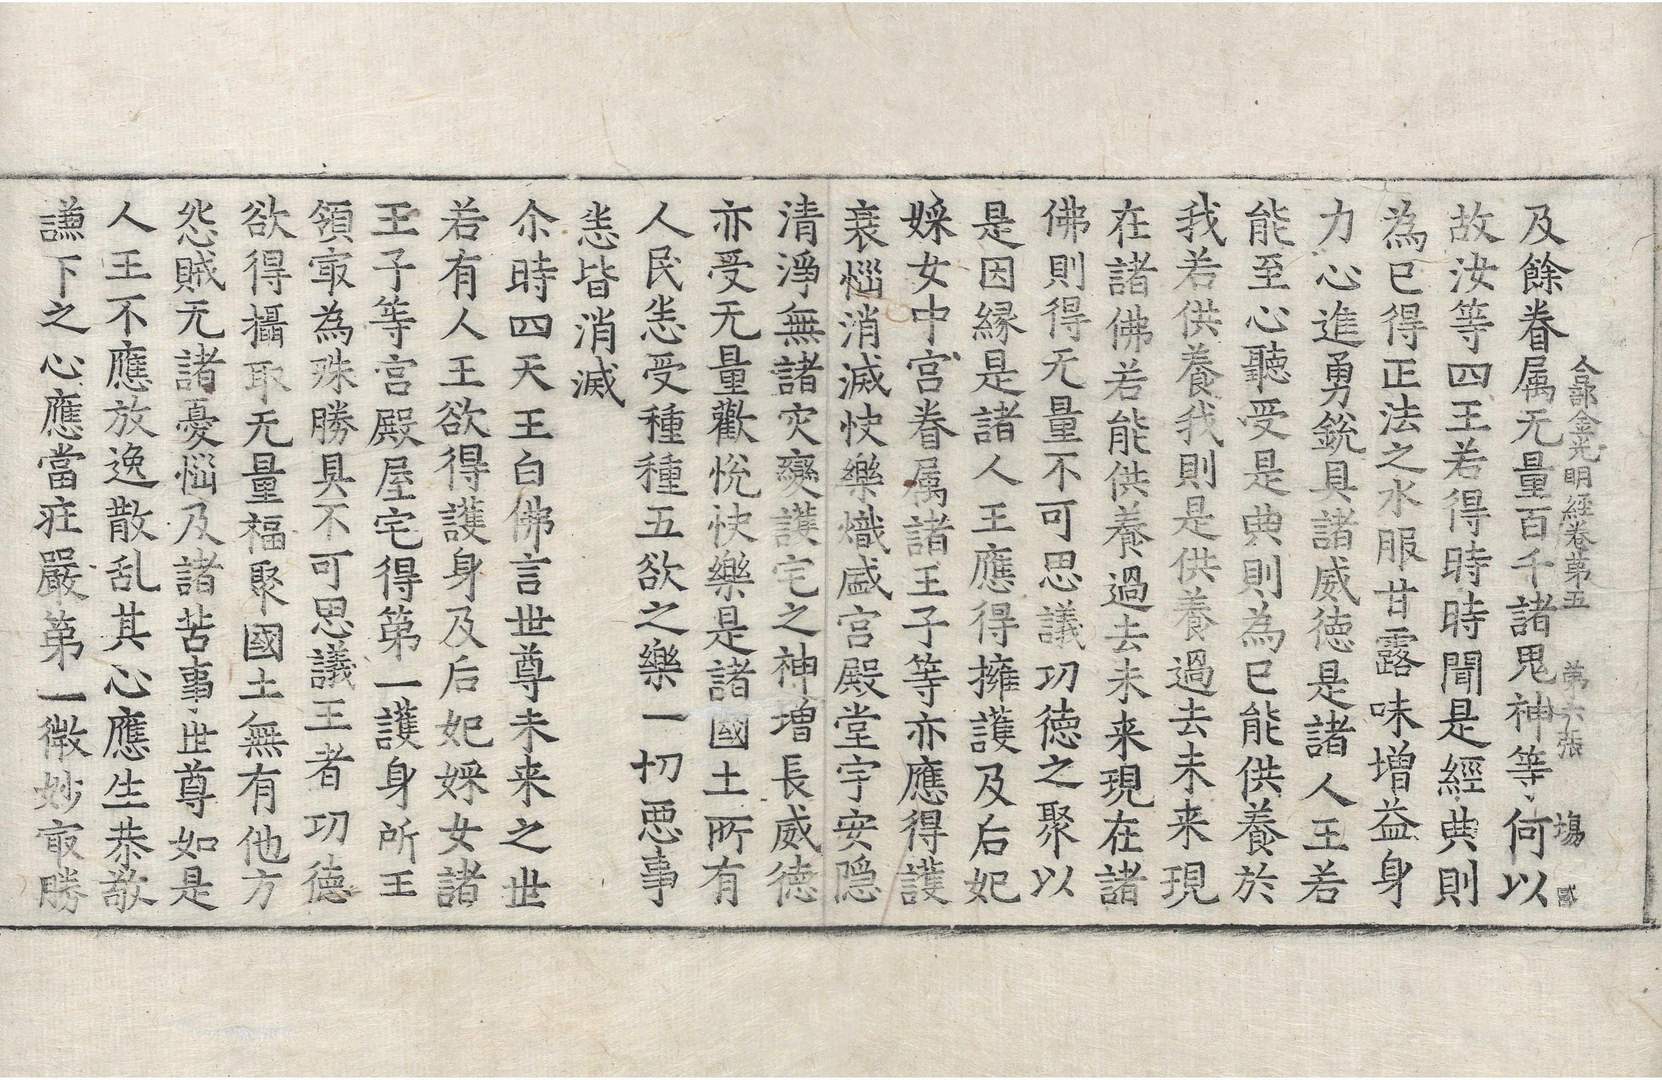 合部金光明經卷第五 第六張 塲
及餘眷属无量百千諸鬼神等何以
故汝等四王若得時時聞是經典則
為已得正法之水服甘露味增益身
力心進勇銳具諸威徳是諸人王若
能至心聽受是典則為已能供養於
我若供養我則是供養過去未来現
在諸佛若能供養過去未来現在諸
佛則得无量不可思議功徳之聚以
是因縁是諸人王應得擁護及后妃
婇女中宫眷属諸王子等亦應得護
衰惱消滅快樂熾盛宫殿堂宇安隠
清淨無諸灾變護宅之神增長威徳
亦受无量歡悅快樂是諸國土所有
人民悉受種種五欲之樂一切悪事
悉皆消滅
尒時四天王白佛言世尊未来之世
若有人王欲得護身及后妃婇女諸
王子等宫殿屋宅得第一護身所王
領㝡為殊勝具不可思議王者功徳
欲得攝取无量福聚國土無有他方
怨賊无諸憂惱及諸苦事世尊如是
人王不應放逸散乱其心應生恭敬
謙下之心應當莊嚴第一微妙㝡勝